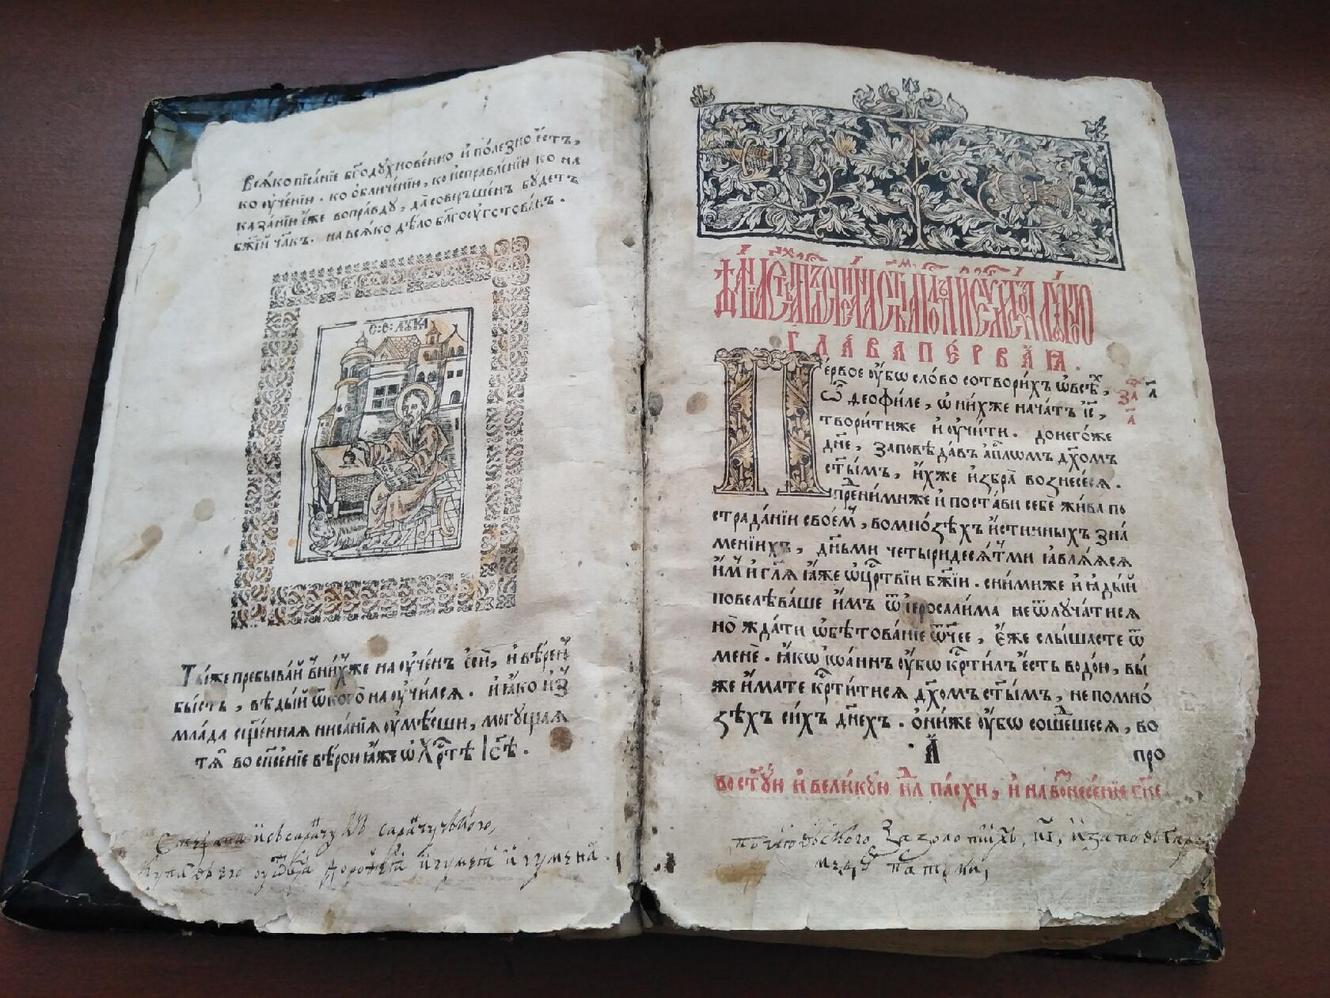 Всѧ́ко писа́нїе бг҃одꙋхнове́нно и҆ поле́зно є҆́сть,
ко ᲂу҆че́нїю . ко ѡ҆бличе́нїю, ко и҆справле́нїю ко на
каза́нїю є҆́же вопра́вдꙋ, да соверше́нъ бꙋ́детъ
бж҃їй чл҃къ . на всѧ́ко дѣ́ло бл҃гоᲂуготова́нъ .
С : Є : ЛꙊКА
Ты́же пребыва́й в ни́хже наᲂуче́нъ є҆сѝ, и҆ вѣ́рен
бы́сть, вѣ́дый ѿ кого̀ наᲂучи́лсѧ . и҆ ꙗ҆́ко и҆з
мла́да сщ҃е́ннаѧ писа́нїѧ ᲂу҆мѣ́еши, могꙋ́щаѧ
тѧ̀ во сп҃се́нїе вѣ́рою ꙗ҆́же ѡ Хрⷭ҇тѣ̀ І҆с҃ѣ .
ГЛА́ВА ПЕ́РВАѦ .
Пе́рвое ᲂу҆́бѡ сло́во сотвори́хъ ѡ всѣ́х,
ѽ Ѳеофи́ле, ѡ ни́хже нача́тъ і҆с҃,
твори́тиже и҆ ᲂу҆чи́ти . донего́же
дн҃е, заповѣ́давъ а҆пⷭ҇лѡмъ дх҃омъ
ст҃ы́мъ, и҆́хже и҆збра̀ вознесе́сѧ .
пред ни́миже и҆ поста́ви себѐ жи́ва по
страда́нїи своє́мъ, во мно́зѣхъ и҆́стинныхъ зна́
менїихъ, дн҃ьми четыридесѧ́тми ꙗ҆влѧ́ѧсѧ
и҆̀мъ и҆ гл҃ѧ ꙗ҆́же ѡ црⷭ҇твїи бж҃їи . сни́миже и҆ ꙗ҆ды́й
повелѣва́ше и҆̀мъ ѿ і҆еросали́ма не ѿлꙋча́тисѧ
но̀ жда́ти ѡ҆бѣтова́нїе ѻ҆́ч҃ее, є҆́же слы́шасте ѿ
менѐ . ꙗ҆́кѡ і҆ѡа́ннъ ᲂу҆́бѡ крⷭ҇ти́лъ є҆́сть водо́ю, вы́
же и҆́мате крⷭ҇ти́тисѧ дх҃омъ ст҃ы́мъ, не помно́
зѣхъ си́хъ дне́хъ . ѻ҆ни́же ᲂу҆́бѡ соше́дшесѧ, во
А҃
про
во ст҃ꙋ́ю и҆ вели́кꙋю нⷣлю па́схи, и҆ на вознесе́нїе гⷭ҇не